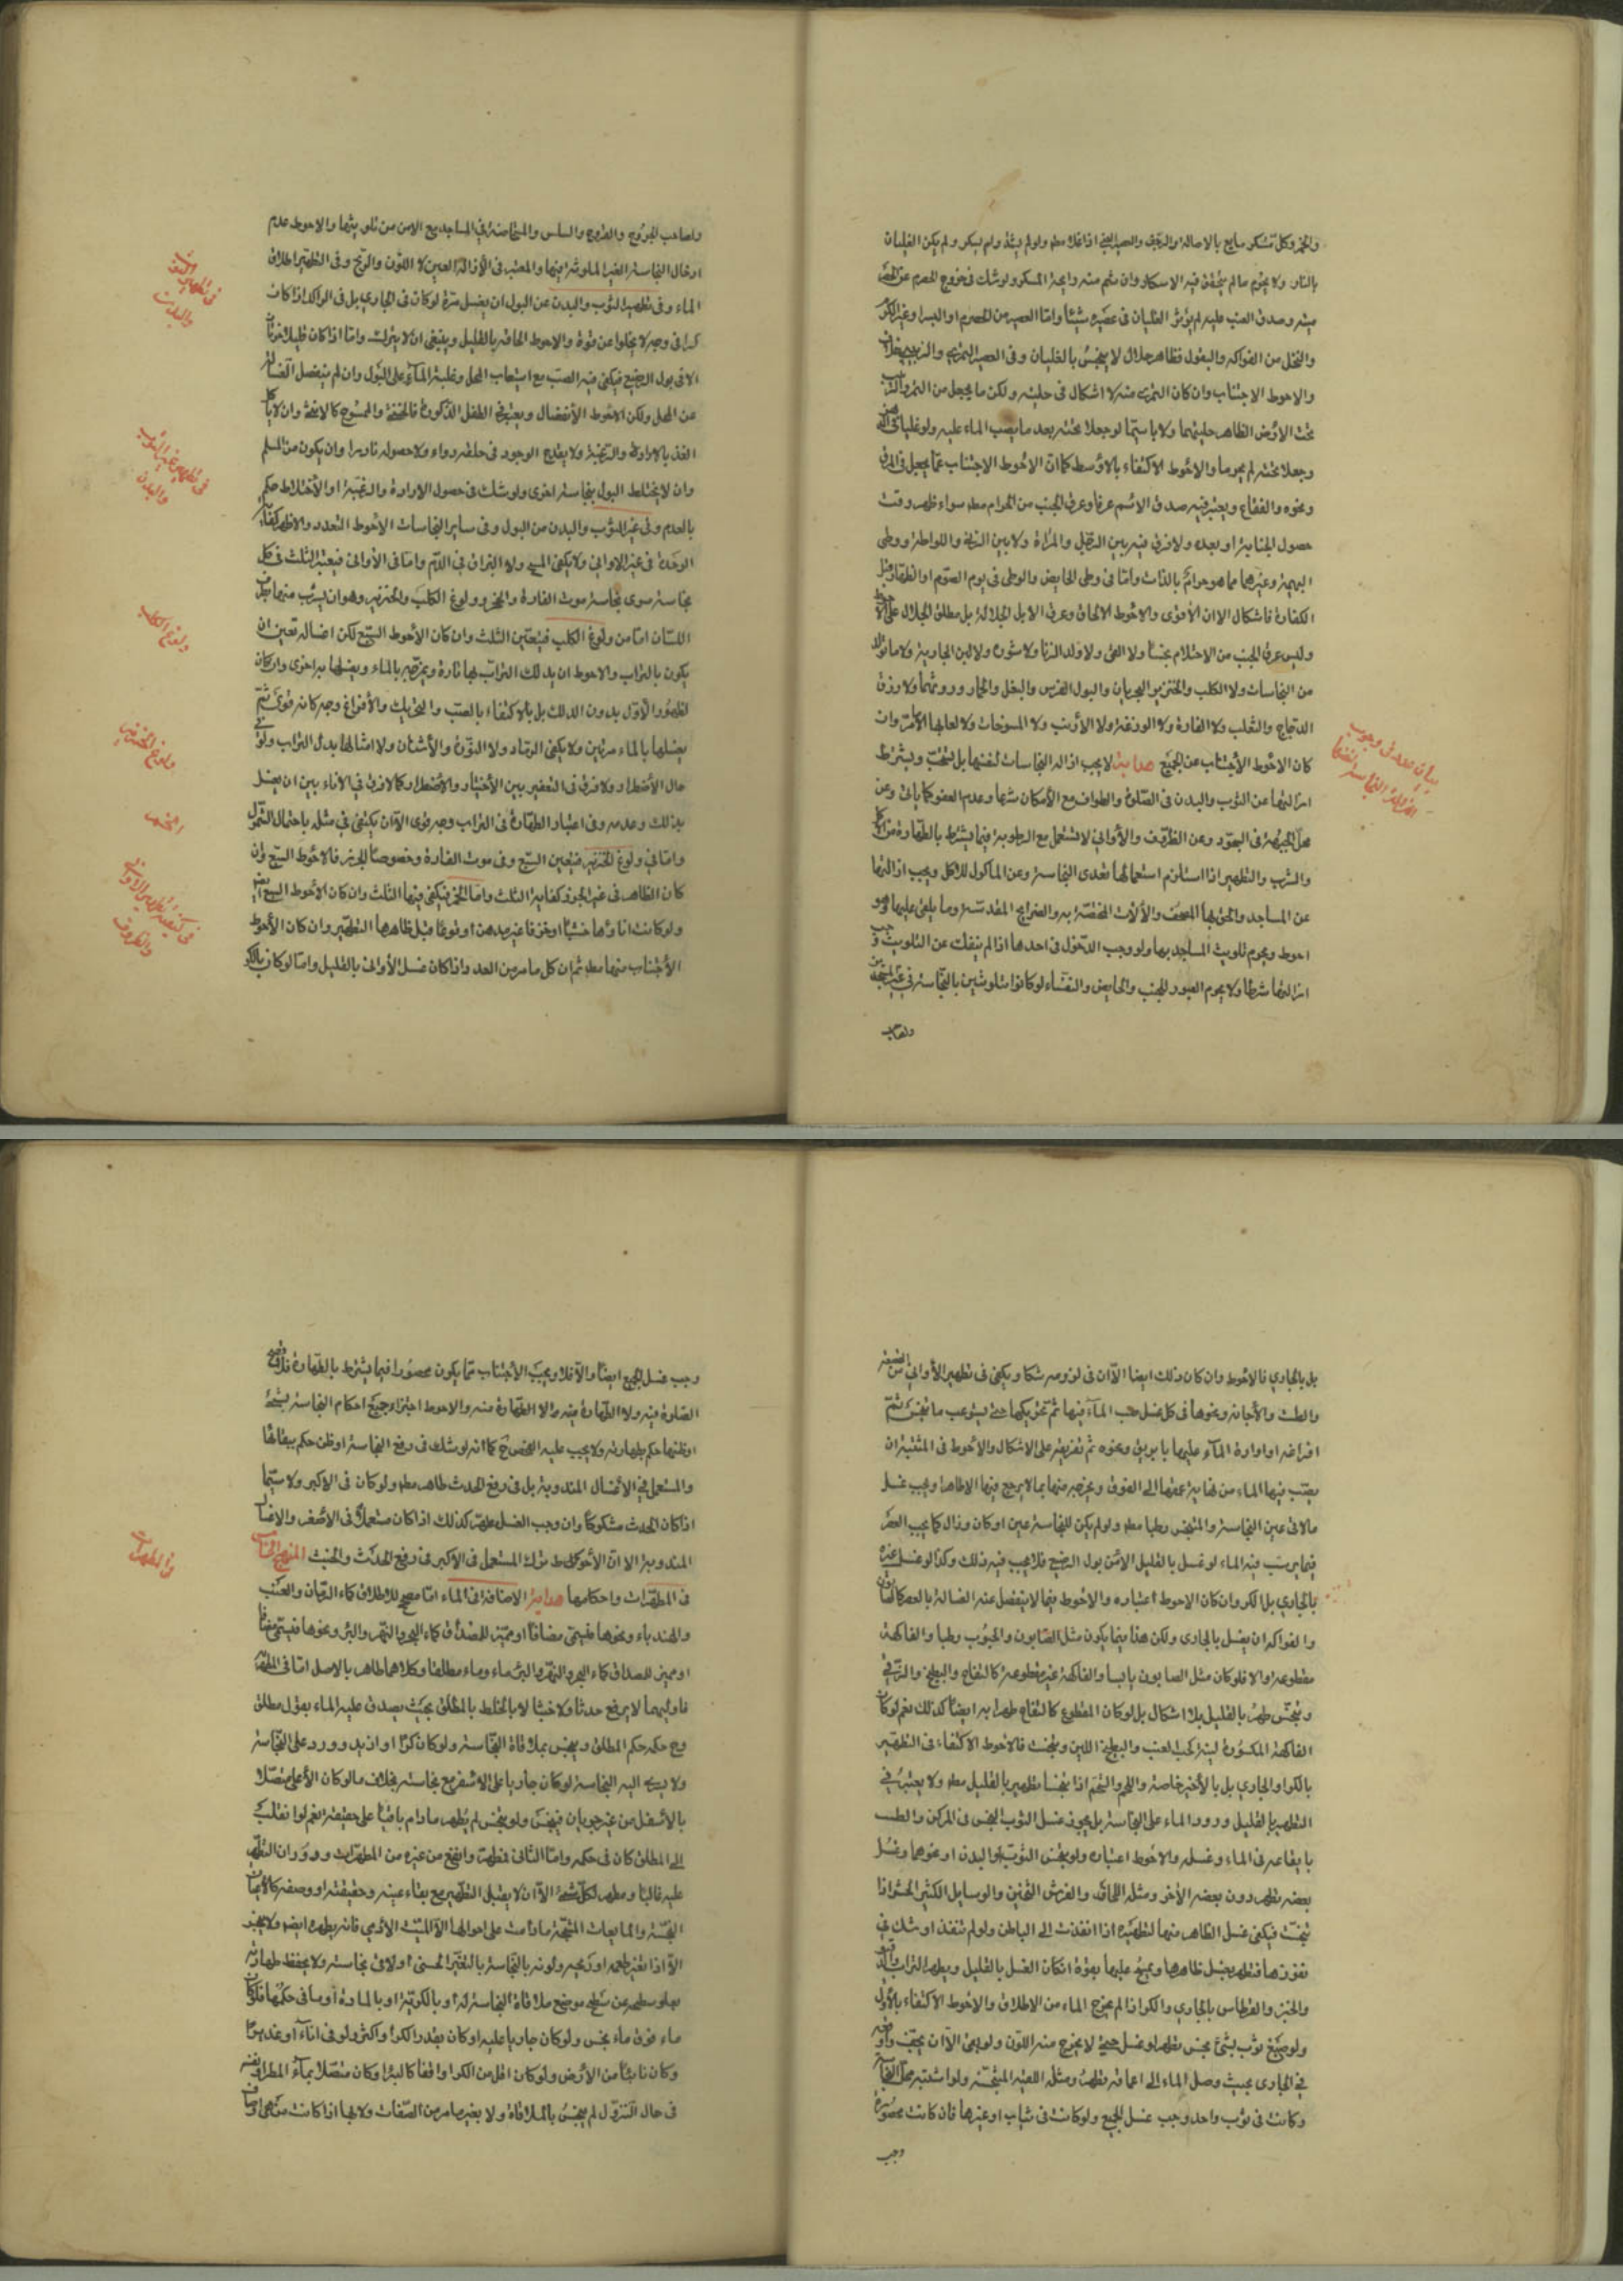 والخمر وكل مسكر مايع بالاصالة والرقيق والعصير العنبي اذا غلا مطم ولو لم يشتد ولم يسكر ولم يكن الغليان
بالنار ولا يحرم ما لم يتحقق فيه الاسكار وان شم منه رايحة المسكر ولو شك في خروج الحصرم عن
وصدق العنب عليه لم يؤثر الغليان في عصيره شيئا واما العصير من الحصرم او البسر او غير الكرم
والنخل من الفواكه والبقول فظاهر حلال لا ينجس بالغليان وفي العصير التمري والزبيبي
والاحوط الاجتناب وان كان التمري منه لا اشكال في حليته ولكن ما يجعل من التمر
تحت الارض الظاهر حليتهما ولا باسيما لو جعلا تحته بعد ما يصب الماء عليه ولو غليا
وجعلا تحته لم يحرما والاحوط الاكتفاء بالاوسط كما ان الاحوط الاجتناب عما يجعل في المرق
ونحوه والفقاع ويعتبر فيه صدق الاسم عرفا وعرق الجنب من الحرام مطم سواء ظهر وقت
حصول الجنابة او بعده ولا فرق فيه بين الرجل والمراة ولا بين الزنا واللواطة ووطي
البهيمة وغيرهما مما هو حرام بالذات واما في وطي الحايض والوطي في يوم الصوم او الظهار قبل
الكفارة فاشكال الا ان الاقوى والاحوط الالحاق وعرق الابل الجلالة بل مطلق الجلال على الاحوط
وليس عرق الجنب من الاحتلام نجسا ولا القئ ولا ولد الزنا ولا سؤره ولا لبن الجارية ولا ما تولد
من النجاسات ولا الكلب والخنزير البحريان والبول الفرس والبغل والحمار وروثها ولا ذرق
الدجاج والثعلب ولا الفارة ولا الوزغة ولا الارنب ولا المسوخات ولا لعابها الا مر وان
كان الاحوط الاجتناب عن الجميع هداية لا يجب ازالة النجاسات لنفسها بل تستحب ويشترط
ازالتها عن الثوب والبدن في الصلوة والطواف مع الامكان شرعا وعدم العفو كما ياتي وعن
محل الجبهة في السجود وعن الظروف والاواني لاستعمل مع الرطوبة فيما يشترط بالطهارة من الاكل
والشرب والتطهير اذا استلزم استعمالها تعدي النجاسة وعن الماكول للاكل ويجب ازالتها
عن المساجد والحق بها المصحف والآلات المختصة به والضرايح المقدسة وما يلقى عليها وهو
احوط ويحرم تلويث المساجد بها ولو وجب الدخول في احدها اذا لم ينفك عن التلويث
ازالتها شرطا ولا يحرم العبور للجنب والحايض والنفساء لو كانوا متلوثين بالنجاسة في غير المسجدين
ولصاحب
بيان عدم وجوب
ازالة النجاسة لنفسها
ولصاحب الجروح والقروح والسلس والمستحاضة في المساجد مع الامن من تلويثها والاحوط عدم
ادخال النجاسة الغير الملوثة فيها والمعتبر في الازالة العين لا اللون والريح وفي التطهير اطلاق
الماء وفي تطهير الثوب والبدن عن البول ان يغسل مرة لو كان في الجاري بل في الراكد اذا كان
كرا في وجه لا يخلوا عن قوة والاحوط الحاقه بالقليل وينبغي ان لا يترك واما اذا كان قليلا فمرتان
الا في بول الرضيع فيكفي فيه الصب مع استيعاب المحل وغلبة الماء على البول وان لم ينفصل الغسالة
عن المحل ولكن الاحوط الانفصال ويعتبر في الطفل الذكورة فالخنثى والممسوح كالانثى وان لا ياكل
الغذاء بالارادة والرغبة ولا يقدح الوجود في حلقه دواء ولا حصوله نادرا وان يكون من المسلم
وان لا يختلط البول بنجاسة اخرى ولو شك في حصول الارادة والرغبة او الاختلاط حكم
بالعدم وفي غير الثوب والبدن من البول وفي ساير النجاسات الاحوط التعدد والاظهر كفاية
الوحدة في غير الاواني ولا يكفي المسح ولا التراب في الدم واما في الاواني فيعتبر الثلث في كل
نجاسة سوى نجاسة موت الفارة والخمر وولوغ الكلب والخنزير وهو ان يشرب منها بطرف
اللسان اما من ولوغ الكلب فيتعين الثلث وان كان الاحوط السبع لكن احداها تعين ان
يكون بالتراب والاحوط ان يدلك التراب بها تارة ويمزجه بالماء ويغسلها به اخرى وان كان
اظهر والاول بدون الدلك بل بالاكتفاء بالصب والتحريك والافراغ وجه كانه قوي ثم
يغسلها بالماء مرتين ولا يكفي الرماد ولا النورة والاشنان ولا امثالها بدل التراب ولو في
حال الاضطرار ولا فرق في التعفير بين الاختيار والاضطرار وكما لا فرق في الاناء بين ان يغسل
بدلك وعدمه وفي اعتبار الطهارة في التراب وجه قوي الا ان يكتفي في مثله باحتمال
واما في ولوغ الخنزير فيتعين السبع وفي موت الفارة وخصوصا الجرذ فالاحوط السبع وان
كان الظاهر في غير الجرذ كفاية الثلث واما الخمر فيكفي فيها الثلث وان كان الاحوط السبع ايضا
ولو كانت اناؤها خشبا او خزفا غير مدهن او قرعا قبل ظاهرها التطهير وان كان الاحوط
الاجتناب منها مطم ثم ان كل ما مر من العدد اذا كان غسل الاواني بالقليل واما لو كان
في تطهير الثوب
والبدن
في تطهير غير الثوب
والبدن
ولوغ الكلب
ولوغ الخنزير
الخمر
في كيفية تطهير الاواني
والظروف
بل بالجاري فالاحوط وان كان ذلك ايضا الا ان في لزومه شكا ويكفي في تطهير الاواني الصغيرة
والطشت والاجانة ونحوها في كل غسل صب الماء فيها ثم تحريكها حتى يستوعب ما نجس ثم
افراغه او ادارة الماء عليها بابريق ونحوه ثم تفريغه على الاشكال والاحوط في المثبتة ان
يصب فيها الماء من نهاية عمقها الى الفوق ويخرجه منها بما لا يرجع فيها الا طاهرا ويجب غسل
ما لاقى عين النجاسة والمتنجس رطبا مطم ولو لم يكن للنجاسة عين او كان وزال كما يجب العصر
فيما يرسب فيه الماء لو غسل بالقليل الا من بول الرضيع فلا يجب فيه ذلك وكذا لو غسل غيره
بالجاري بل الكر وان كان الاحوط اعتباره والاحوط فيما لا ينفصل عنه الغسالة بالعصر كالصابون
والفواكه ان يغسل بالجاري ولكن هذا فيما يكون مثل الصابون والحبوب رطبا والفاكهة
مقطوعة والا فلو كان مثل الصابون يابسا والفاكهة غير مقطوعة كالتفاح والبطيخ والرقي
وتنجس طهر بالقليل بلا اشكال بل لو كان المقطوع كالتفاح طهر به ايضا كذلك نعم لو كان
الفاكهة المكسورة لينة كحب لعنب والبطيخ اللين وتنجست فالاحوط الاكتفاء في التطهير
بالكر او الجاري بل بالاخير خاصة واللحم والشحم اذا تنجسا تطهير بالقليل مطم ولا يعتبر في
التطهير بالقليل ورود الماء على النجاسة بل يجوز غسل الثوب النجس في المركن والطشت
بايقاعه في الماء وغسله والاحوط اعتباره ولو نجس الثوب والبدن او نحوهما وغسل
بعضه تطهر دون بعضه الاخر ومثله اللحاف والفرش الثخين والوسايل الكثير الحشو اذا
تنجست فيكفي غسل الظاهر منها لتطهيره اذا انفذت الى الباطن ولو لم تنفذ او شك في
نفوذها فتطهر بغسل ظاهرها ويصب عليها بقوة ان كان الغسل بالقليل ويطهر التراب
والخبز والقرطاس بالجاري والكر اذا لم يخرج الماء من الاطلاق والاحوط الاكتفاء بالاول
ولو صبغ ثوب بشئ نجس تطهر لو غسل حتى لا يخرج منه اللون ولو بقي الا ان يجفف
في الجاري بحيث وصل الماء الى اعماقه تطهر ومثله اللعبة المتنجسة ولو اشتبه محل النجاسة
وكانت في ثوب واحد وجب غسل الجميع ولو كانت في ثياب او غيرها فان كانت محصورة
وجب
وجب غسل الجميع ايضا والا فلا ويجب الاجتناب عما يكون محصورا فيما يشترط بالطهارة فلا تصح
الصلوة فيه ولا الطهارة منه والا الطهارة منه والاحوط اجراء جميع احكام النجاسة
او ظنها حكم بطهارته ولا يجب عليه الفحص ح كما انه لو شك في رفع النجاسة او ظن حكم ببقائها
والمستعمل في الاغسال المندوبة بل في رفع الحدث طاهر مطم ولو كان في الاكبر ولا سيما
اذا كان الحدث مشكوكا وان وجب الغسل عليه كذلك اذا كان مستعملا في الاصغر والاغسال
المندوبة الا ان الاحوط ترك المستعمل في الاكبر في رفع الحدث والخبث المنهج الخامس
في المطهرات واحكامها هداية الاضافة في الماء اما مصحح للاطلاق كماء الرمان والعنب
والهندباء ونحوها فيسمى مضافا او مميز للمصداق كماء البحر والنهر والبئر ونحوها فيسمى
او مميز للمصداق كماء البحر والنهر والبئر ماء وماء مطلقا وكلاهما طاهر بالاصل اما في المطهرية
فاوليهما لا يرفع حدثا ولا خبثا الا بالخلط بالمطلق بحيث يصدق عليه الماء بقول مطلق
وح حكمه حكم المطلق وينجس بملاقاة النجاسة ولو كان كرا او ان يد وورد على النجاسة
ولا يسري اليه النجاسة لو كان جاريا على الاسفل مع نجاسته بخلاف ما لو كان الاعلى متصلا
بالاسفل من غير جريان فينجس ولو تنجس لم يطهر ما دام باقيا على حقيقته نعم لو انقلب
الى المطلق كان في حكمه واما الثاني فمطهر وانفع من غيره من المطهرات ودوران التطهير
عليه غالبا ومطهر لكل شئ الا ان لا يقبل التطهير مع بقاء عينه وحقيقته او وصفه كالاعيان
النجسة والمايعات المتنجسة ما دامت على احوالها الا الميت الادمي فانه يطهره ايضا ولا ينجس
الا اذا تغير طعمه او ريحه ولونه بالنجاسة بالتغير الحسي او لاقى نجاسة ولا يحفظ طهارته
بعلو سطحه عن سطح موضع ملاقاة النجاسة له او بالكرية او بالمادة او ما في حكمها فلو كان
ماء فوق ماء نجس ولو كان جاريا عليه او كان بقدر الكر او اكثر ولو في اناء او غدير
وكان نابعا من الارض ولو كان اقل من الكر او واقفا كالبئر او كان متصلا بماء المطر
في حال النزول لم ينجس بالملاقاة ولا بغير ما مر من الصفات ولا بها اذا كانت من
في المطهرات